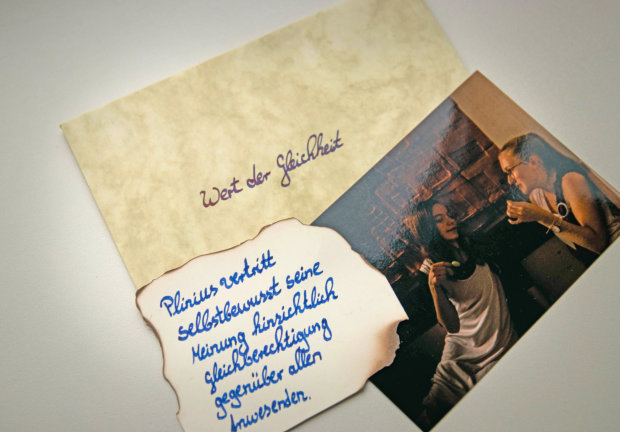 Wert der Gleichheit
Plinius vertritt
selbstbewusst seine
Meinung hinsichtlich
Gleichberechtigung
gegenüber allen
Anwesenden.